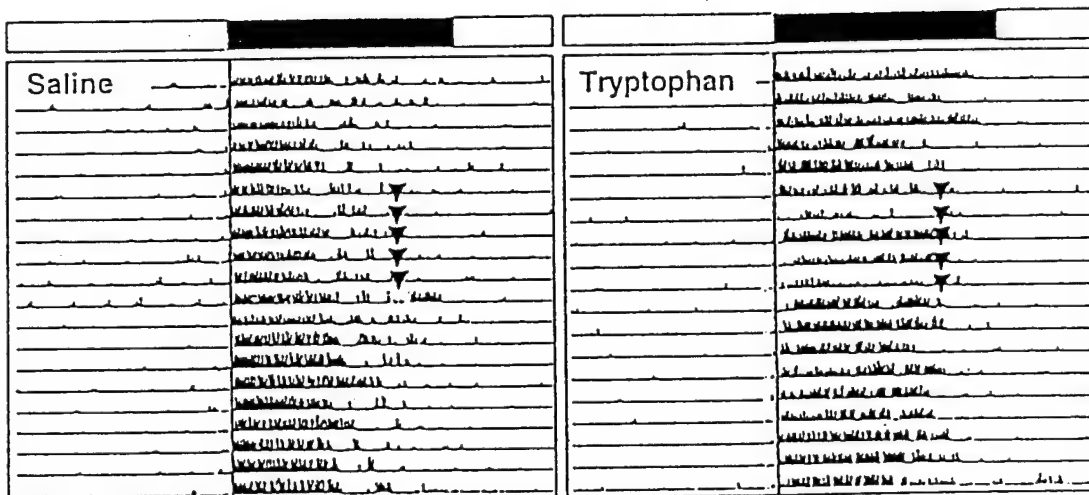 Saline
Tryptophan